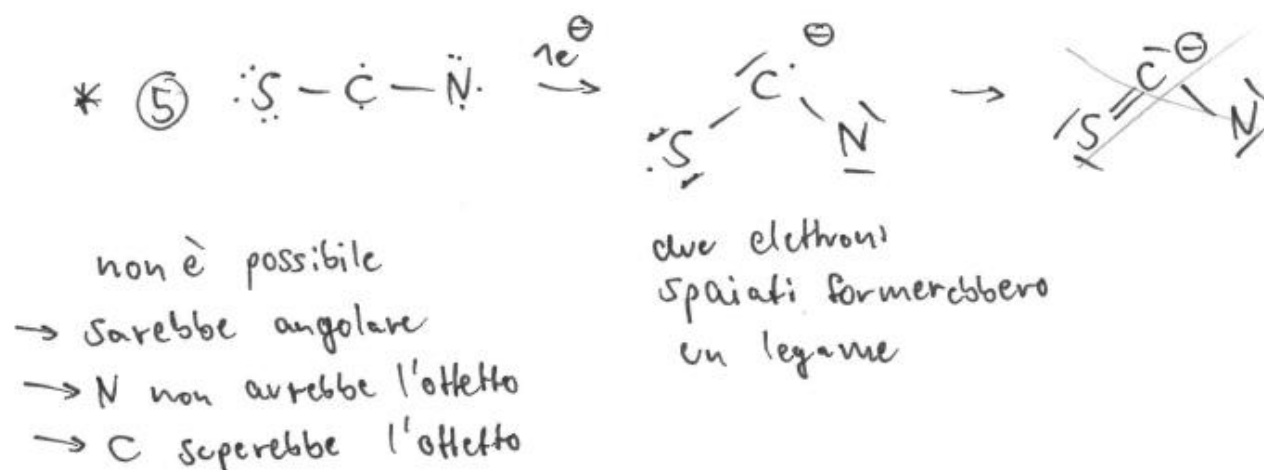 * ⑤ :S̈ – Ċ – N̈· 1e⊖ → S – C ⊖ – N → S = C ⊖ – N
non è possibile
→ sarebbe angolare
→ N non avrebbe l'ottetto
→ C superebbe l'ottetto
due elettroni
spaiati formerebbero
un legame